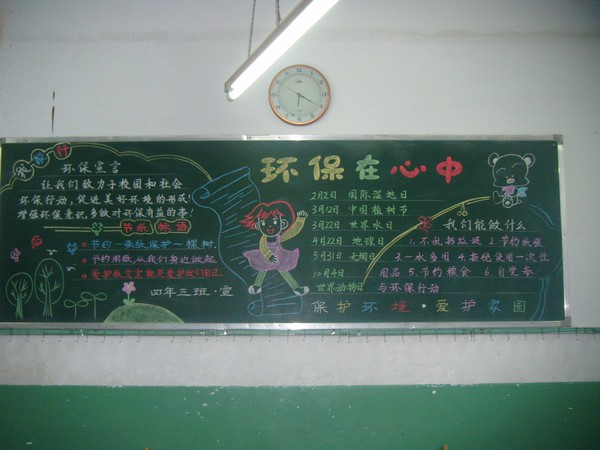 环保在心中
环保宣言
让我们致力于校园和社会
环保行动,促进美好环境的形成!
增强环保意识,多做对环保有益的事!
节纸标语
节约一张纸保护一棵树.
节约用纸从我们身边做起.
爱护纸
就是爱护我们自己.
四年三班·宣
2月2日 国际湿地日
3月12日 中国植树节
3月22日 世界水日
4月22日 地球日
5月31日 无烟日
10月4日
世界动物日
我们能做什么
1.不乱扔垃圾 2.节约纸张
3.一水多用 4.拒绝使用一次性
用品 5.节约粮食 6.自觉参
与环保行动
保护环境·爱护家园